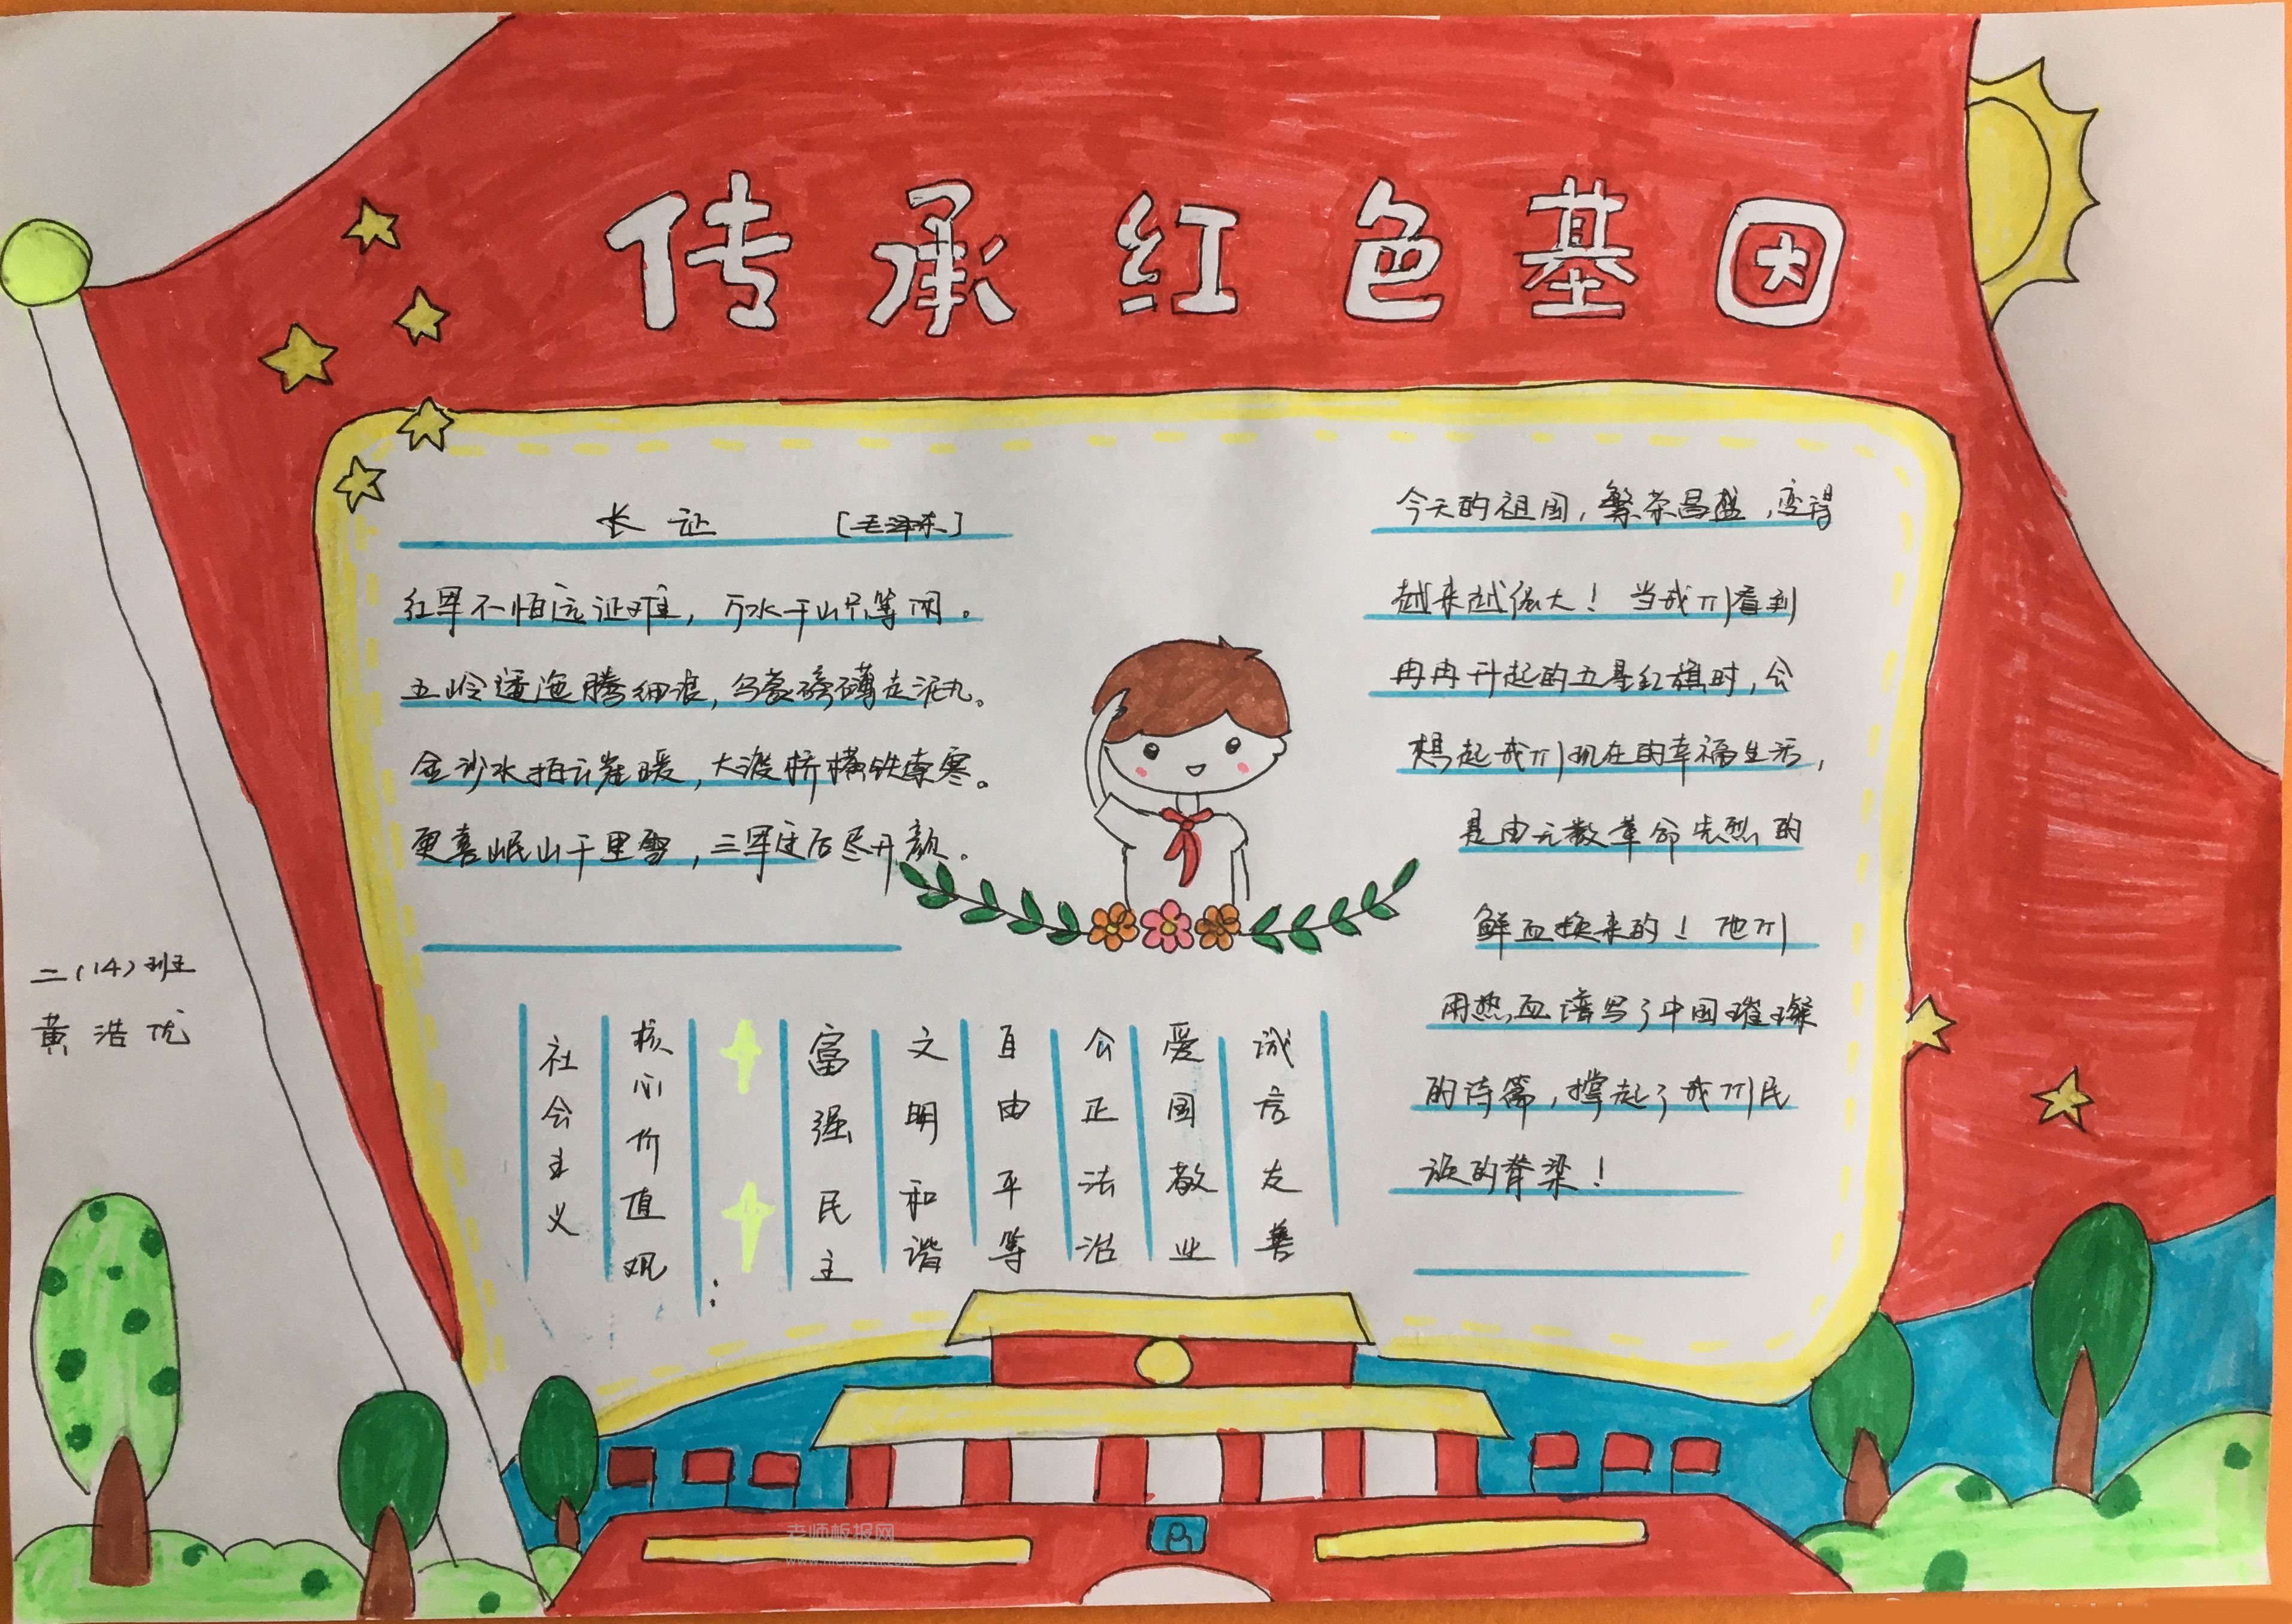 传承红色基因
长征 [毛泽东]
红军不怕远征难，万水千山只等闲。
五岭逶迤腾细浪，乌蒙磅礴走泥丸。
金沙水拍云崖暖，大渡桥横铁索寒。
更喜岷山千里雪，三军过后尽开颜。
今天的祖国，繁荣昌盛，变得
越来越强大！当我们看到
冉冉升起的五星红旗时，会
想起我们现在的幸福生活，
是由无数革命先烈的
鲜血换来的！他们
用热血谱写了中国璀璨
的诗篇，撑起了我们民
族的脊梁！
社会主义
核心价值观：
富强民主
文明和谐
自由平等
公正法治
爱国敬业
诚信友善
二(14)班
黄浩优
老师板报网